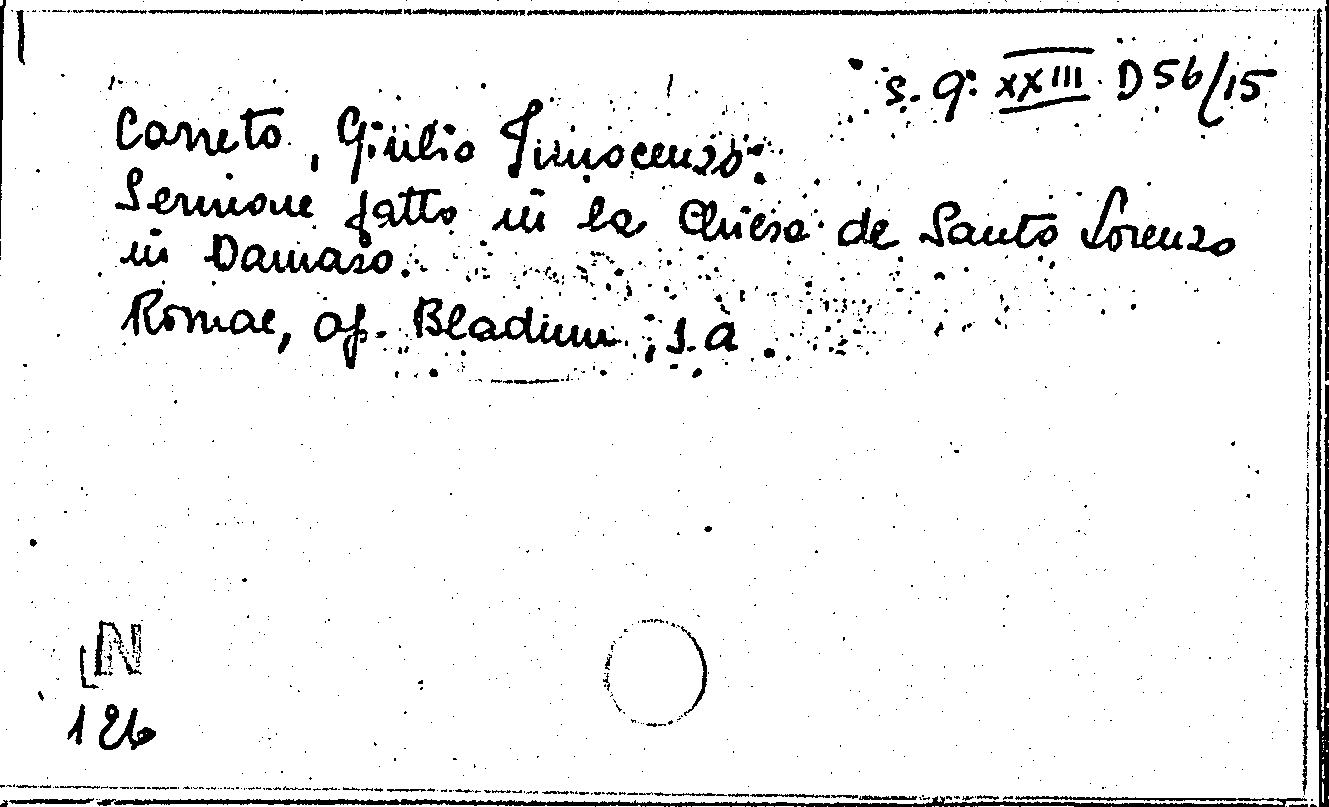 s. q. XXIII D 56/15
Carreto, Giulio Innocenzo.
Sermone fatto in la Chiesa de Santo Lorenzo
in Damaso.
Romae, ap. Bladium, s.a.
N
126